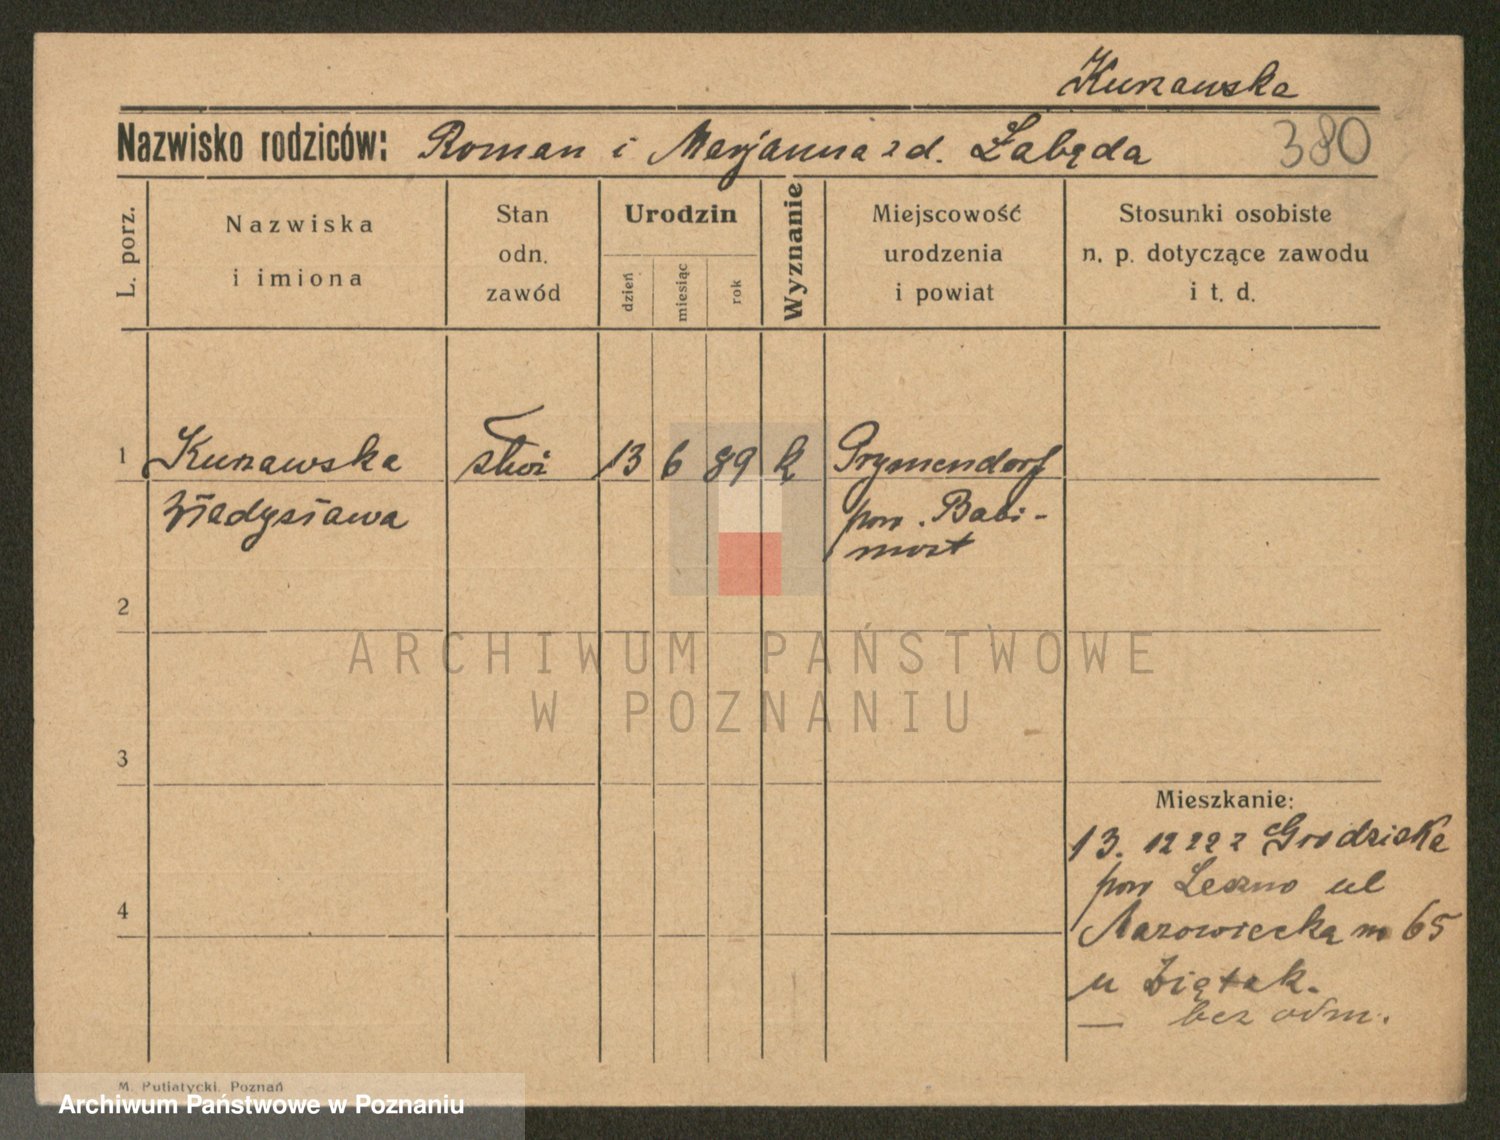 Kurzawska
Nazwisko rodziców: Roman i Marjanna zd. Łabęda 380
L. porz.
Nazwiska
i imiona
Stan
odn.
zawód
Urodzin
dzień
miesiąc
rok
Wyznanie
Miejscowość
urodzenia
i powiat
Stosunki osobiste
n. p. dotyczące zawodu
i t. d.
1 Kurzawska 13 6 89 k Prymendorf
Władysława pow. Babi-
most
2
3
4
Mieszkanie:
13. 12 22 z Grodziska
pow Leszno ul
Mazowiecka 65
u Ziętak.
— bez odm.
ARCHIWUM PAŃSTWOWE
W POZNANIU
M. Putiatycki, Poznań
Archiwum Państwowe w Poznaniu